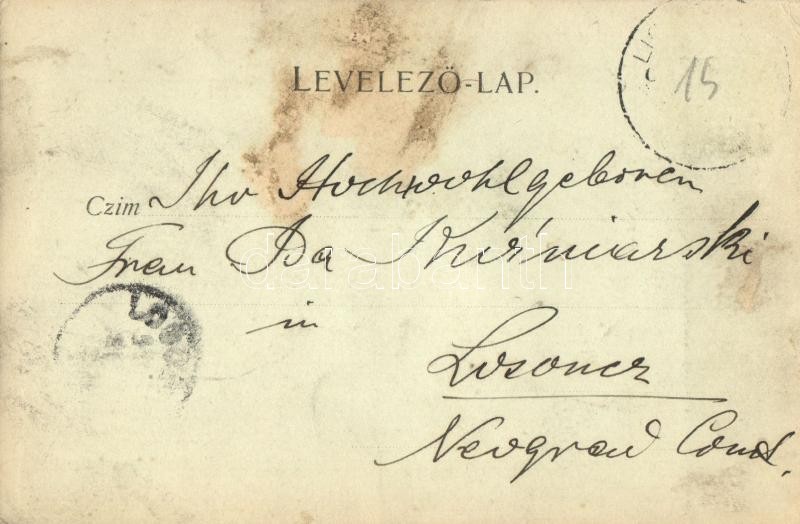 LEVELEZŐ-LAP.
15
Czim Ihr Hochwohlgeboren
Frau Da Kuśniarski
in
Losoncz
Neograd Comt.
darabanth